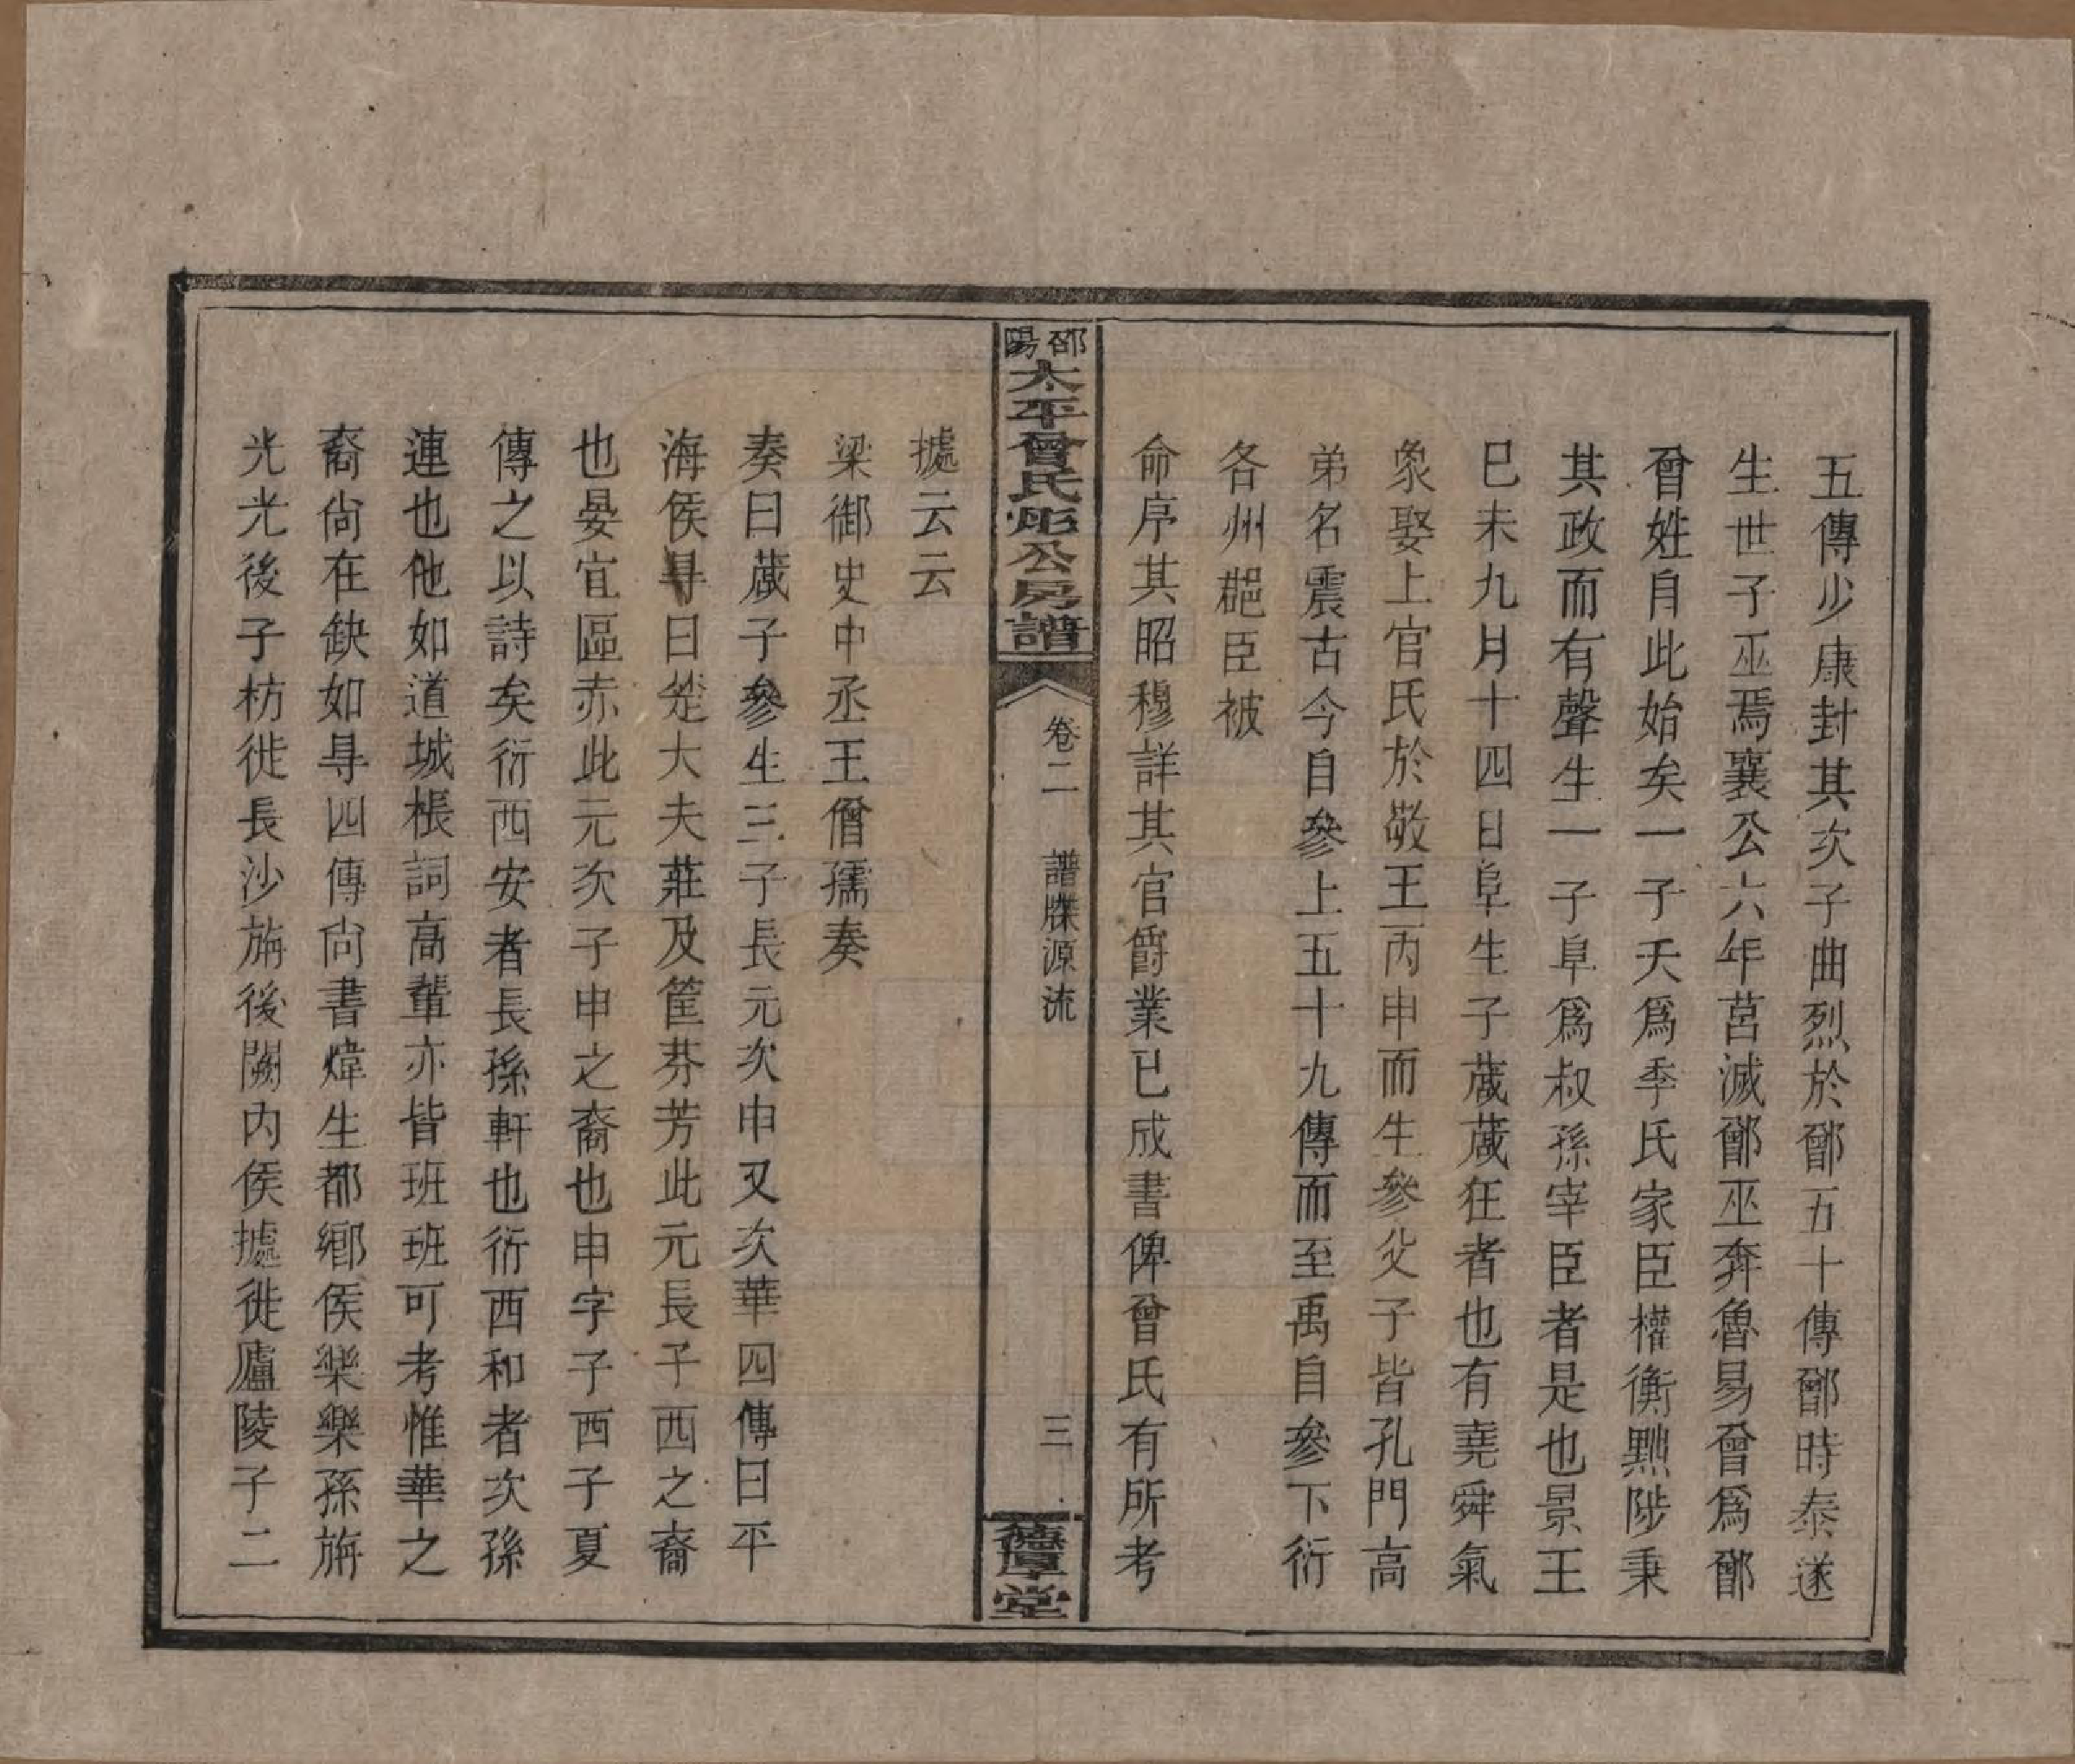 五傳少康封其次子曲烈於鄫五十傳鄫時泰遂
生世子巫焉襄公六年莒滅鄫巫奔魯易曾爲鄫
曾姓自此始矣一子夭爲季氏家臣權衡黜陟秉
其政而有聲生一子阜爲叔孫宰臣者是也景王
巳未九月十四日阜生子蒧蒧狂者也有堯舜氣
象娶上官氏於敬王丙申而生參父子皆孔門高
弟名震古今自參上五十九傳而至禹自參下衍
各州郡臣被
命序其昭穆詳其官爵業已成書俾曾氏有所考
邵陽太平曾氏炉公房譜
卷二 譜牒源流 三 德厚堂
據云云
梁御史中丞王僧孺奏
奏曰蒧子參生三子長元次申又次華四傳曰平
海侯尋曰楚大夫莊及筐芬芳此元長子西之裔
也晏宜區赤此元次子申之裔也申字子西子夏
傳之以詩矣衍西安者長孫軒也衍西和者次孫
連也他如道城根詞高輩亦皆班班可考惟華之
裔尙在缺如尋四傳尙書煒生都鄉侯樂樂孫旃
光光後子枋徙長沙旃後關內侯據徙廬陵子二